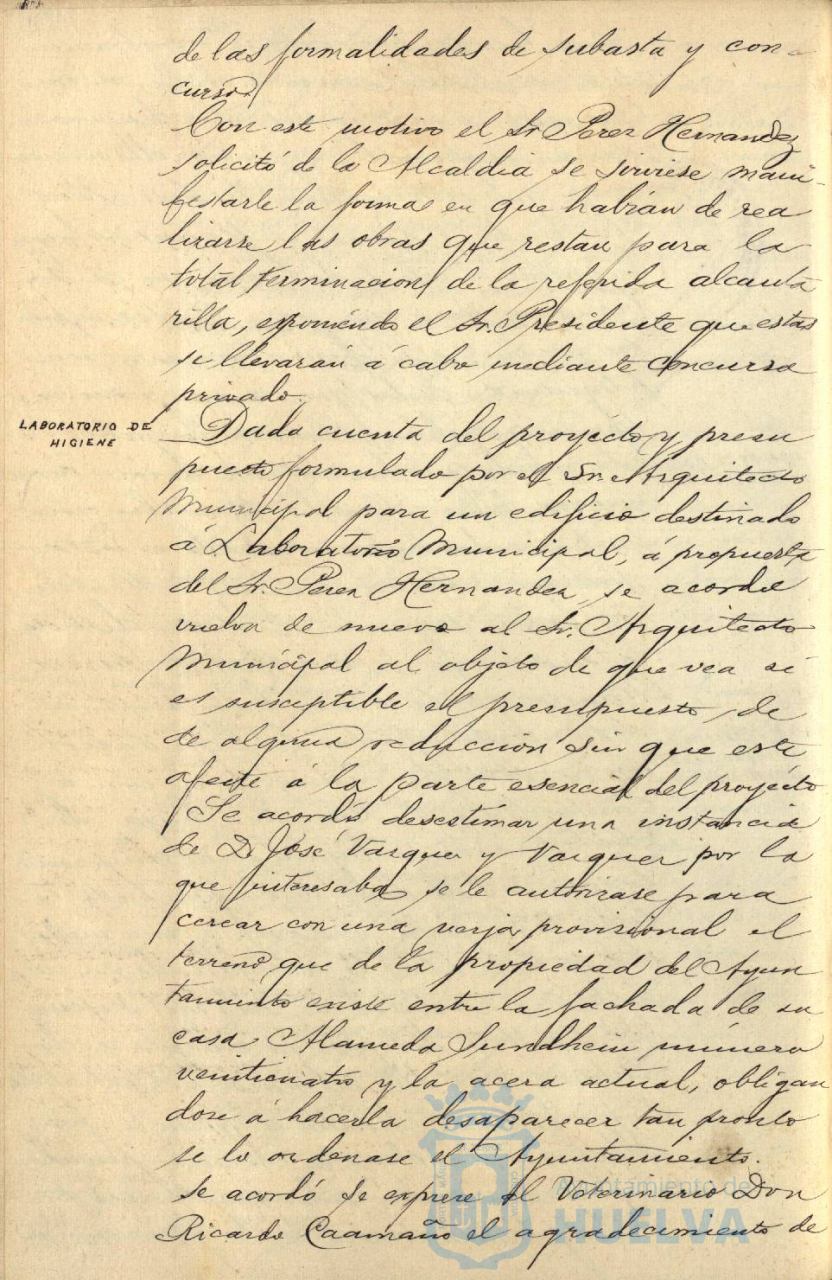 de las formalidades de subasta y con-
curso.
Con este motivo el Sr. Perez Hernandez
solicitó de la Alcaldia se sirviese mani-
festarle la forma en que habian de rea
lizarse las obras que restan para la
total terminacion de la referida alcanta
rilla, exponiendo el Sr. Presidente que estas
se llevarán á cabo mediante concurso
privado.
LABORATORIO DE
HIGIENE
Dada cuenta del proyecto y presu
puesto formulado por el Sr. Arquitecto
Municipal para un edificio destinado
á Laboratorio Municipal, á propuesta
del Sr. Perez Hernandez, se acordó
vuelva de nuevo al Sr. Arquitecto
Municipal al objeto de que vea si
es susceptible el presupuesto, de
de alguna reduccion sin que esta
afecte á la parte esencial del proyecto
Se acordó desestimar una instancia
de D. José Vazquez y Vazquez por la
que interesaba se le autorizase para
cercar con una verja provisional el
terreno que de la propiedad del Ayun
tamiento existe entre la fachada de su
casa Alameda Sundhein número
veinticuatro y la acera actual, obligan
dose á hacerla desaparecer tan pronto
se lo ordenase el Ayuntamiento.
Se acordó se exprese al Veterinario Don
Ricardo Caamaño el agradecimiento de
Ayuntamiento de
HUELVA